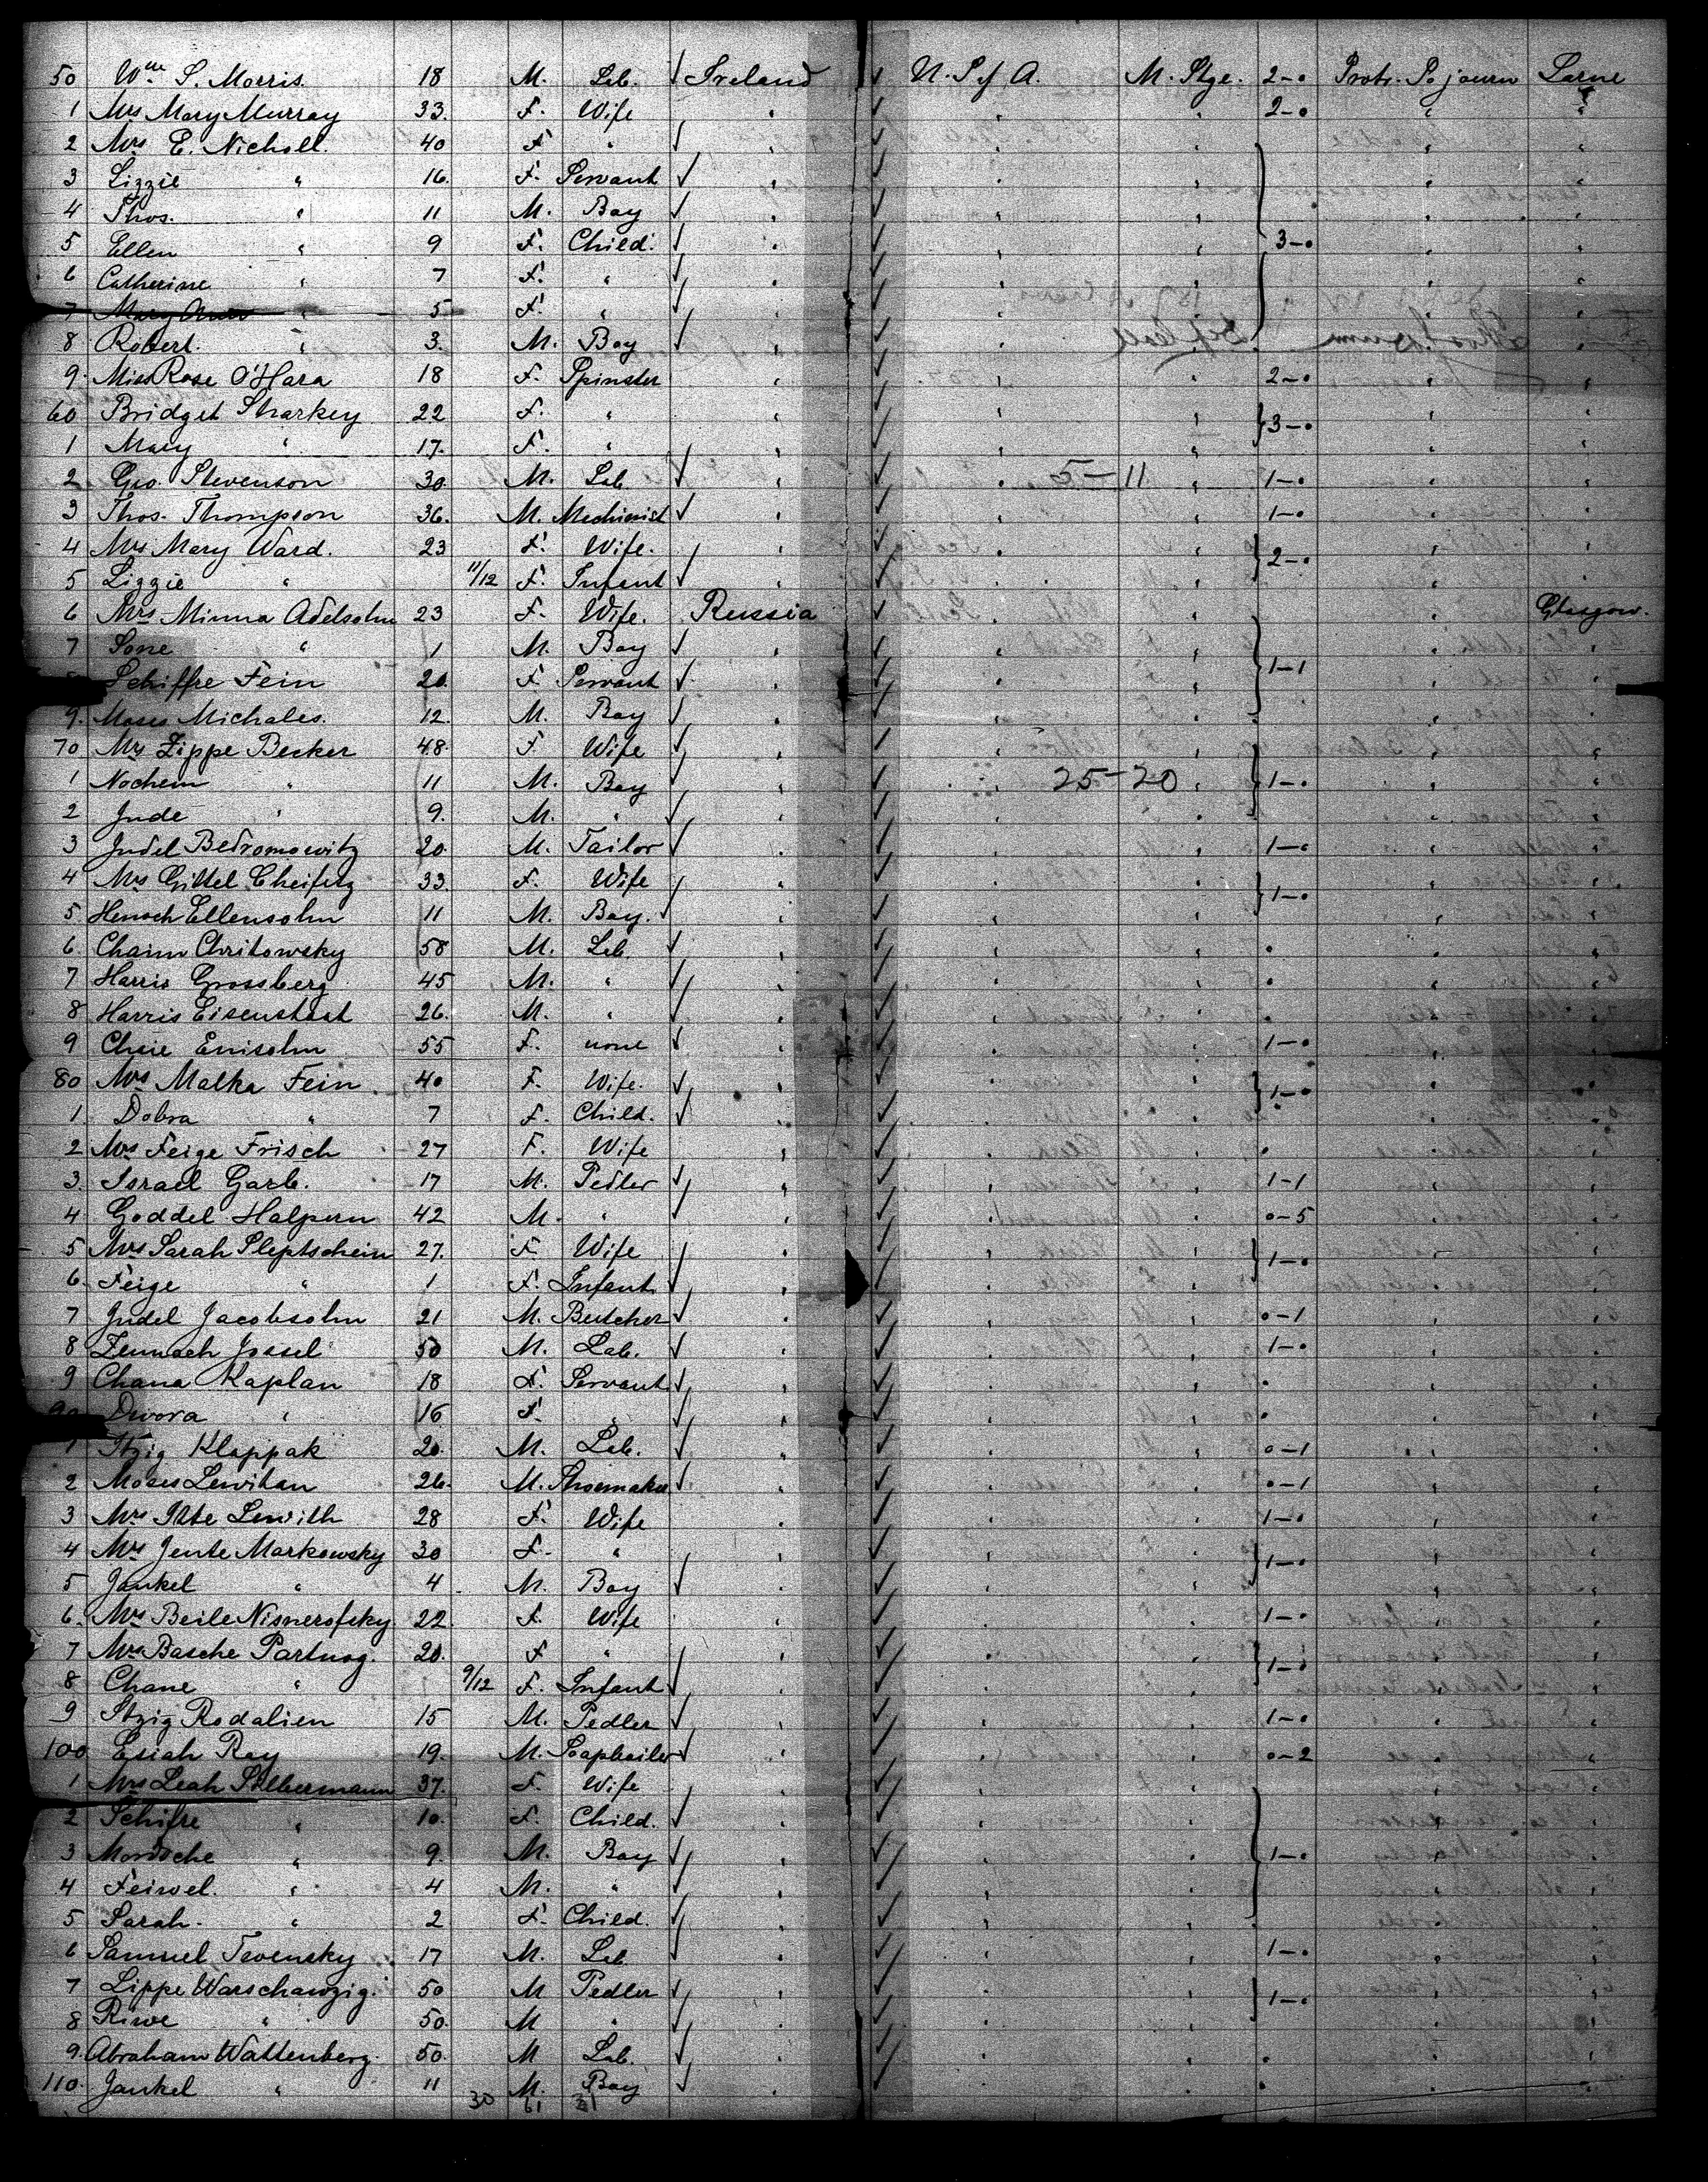 50 Wm S. Morris. 18 M. Lab. Ireland U. S. of A. M. Stge. 2-0 Protr. Sojourn Larne
1 Mrs Mary Murray 33. F. Wife " " " 2-0 " "
2 Mrs E. Nicholl. 40 F. " " " " " "
3 Lizzie " 16. F. Servant " " " " "
4 Thos. " 11 M. Boy " " " " "
5 Ellen " 9 F. Child. " " " 3-0 " "
6 Catherine " 7 F. " " " " " "
7 Mary Ann " 5 F. " " " " " "
8 Robert. " 3. M. Boy " " " " "
9. Miss Rose O'Hara 18 F. Spinster " " " 2-0 " "
60 Bridget Sharkey 22 F. " " " " 3-0 " "
1 Mary " 17. F. " " " " " "
2 Geo. Stevenson 30. M. Lab. " " 5-11 " 1-0 " "
3 Thos. Thompson 36. M. Machinist " " " 1-0 " "
4 Mrs Mary Ward. 23 F. Wife. " " " 2-0 " "
5 Lizzie " 11/12 F. Infant " " " " "
6 Mrs Minna Adelsohn 23 F. Wife. Russia " " " Glasgow.
7 Sone " 1 M. Boy " " " " "
Schiffre Fein 20. F. Servant " " " 1-1 " "
9. Moses Michales. 12. M. Boy " " " " "
70 Mrs Zippe Becker 48. F. Wife " " " " "
1 Nochem " 11 M. Boy " " 25-20 " 1-0 " "
2 Jude " 9. M. " " " " " "
3 Judel Bedromowitz 20. M. Tailor " " " 1-0 " "
4 Mrs Gittel Cheifetz 33. F. Wife " " " 1-0 " "
5. Henoch Ellensohn 11 M. Boy. " " " " "
6. Chaim Chritowsky 58 M. Lab " " " " " "
7 Harris Grossberg 45 M. " " " " " " "
8 Harris Eisenstaat 26. M. " " " " " " "
9 Chaie Enisohn 55 F. none " " " 1-0 " "
80 Mrs Malka Fein 40 F. Wife. " " " 1-0 " "
1. Dobra " 7 F. Child. " " " " "
2 Mrs Feige Frisch 27 F. Wife " " " " " "
3. Israel Garb. 17 M. Pedler " " " 1-1 " "
4. Goddel Halpern 42 M. " " " " 0-5 " "
5 Mrs Sarah Sleptschein 27. F. Wife " " " 1-0 " "
6. Feige " 1 F. Infant " " " " "
7 Judel Jacobsohn 21 M. Butcher " " " 0-1 " "
8 Zennach Jossel 50 M. Lab. " " " 1-0 " "
9 Chana Kaplan 18 F. Servant " " " " " "
90 Dwora " 16 F. " " " " " " "
1 Itzig Klappak 20. M. Lab. " " " 0-1 " "
2 Moses Lewitan 26. M. Shoemaker " " " 0-1 " "
3 Mrs Itte Lewith 28 F. Wife " " " 1-0 " "
4 Mrs Jente Markowsky 30 F. " " " " 1-0 " "
5 Jankel " 4 M. Boy " " " " "
6. Mrs Beile Nisnerofsky. 22. F. Wife " " " 1-0 " "
7 Mrs Basche Partnog. 20. F " " " " 1-0 " "
8 Chane " 9/12 F. Infant " " " " "
9 Itzig Rodalien 15 M. Pedler " " " 1-0 " "
100 Esiah Ray 19. M. Soapboiler " " " 0-2 " "
1 Mrs Leah Silbermann 37. F. Wife " " " " "
2 Schifre " 10. F. Child. " " " " "
3 Mordsche " 9. M. Boy " " " 1-0 " "
4 Feiwel. " 4 M. " " " " " "
5 Sarah. " 2 F. Child. " " " " "
6 Samuel Tevensky 17 M. Lab " " " 1-0 " "
7 Lippe Warschawzig. 50 M Pedler " " " 1-0 " "
8 Riwe " 50. M " " " " " "
9. Abraham Wattenberg. 50. M Lab. " " " " " "
110. Jankel " 11 M. Boy " " " " " "
30 61 31